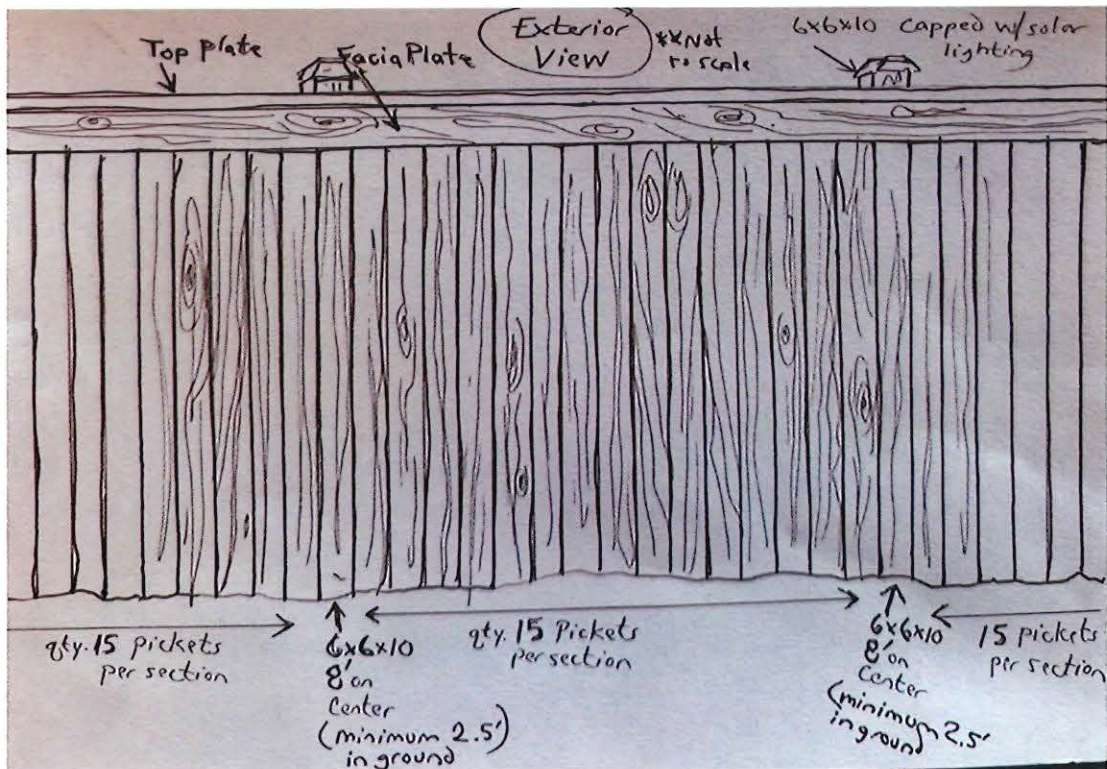 Top plate
Facia Plate
Exterior
View
**Not
to scale
6x6x10 Capped w/solar
lighting
qty. 15 Pickets
per section
6x6x10
8' on
Center
(minimum 2.5')
in ground
qty. 15 Pickets
per section
6x6x10
8' on
Center
(minimum 2.5'
in ground)
15 pickets
per section